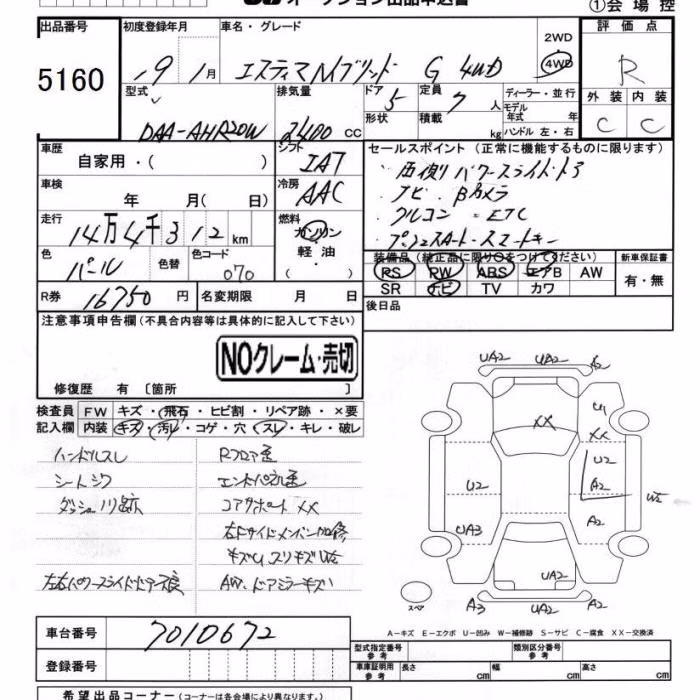 オークション出品申込書
①会場控
出品番号
5160
初度登録年月
19 1月
車名・グレード
エスティマハイブリッド G 4WD
2WD
4WD
評価点
R
外装 内装
C C
型式
DAA-AHR20W
排気量
2400 cc
ドア 5
形状
定員 7 人
積載 kg
ディーラー・並行
モデル年式 年
ハンドル 左・右
車歴
自家用・( )
シフト
IAT
セールスポイント (正常に機能するものに限ります)
・両側パワースライドドア
・ナビ・Bカメラ
・クルコン・ETC
・プッシュスタート・スマートキー
車検
年 月( 日)
冷房
AAC
走行
14万4千312km
燃料
ガソリン
軽油
色
パール
色替
色コード
070
装備品 (純正品に限り○をつけて下さい)
PS PW ABS エアB AW
SR ナビ TV カワ
新車保証書
有・無
R券 16750円
名変期限 月 日
後日品
注意事項申告欄 (不具合内容等は具体的に記入して下さい)
NOクレーム・売切
修復歴 有 〔箇所 〕
検査員記入欄
FW キズ・飛石・ヒビ割・リペア跡・×要
内装 キズ・汚レ・コゲ・穴・スレ・キレ・破レ
ハンドルスレ
シートシワ
Rフロア歪
エンドパネル歪
コアサポートXX
左右パワースライドドア不良
AW、ドアミラーキズ
UA2 UA2 A2
U1
XX XX
U2 U2
A2
UA3 A2
UA2
スペア
A3 UA2 A2
A-キズ E-エクボ U-凹み W-補修跡 S-サビ C-腐食 XX-交換済
車台番号
7010672
登録番号
型式指定番号 参考
類別区分番号 参考
車庫証明用 参考
長さ cm 幅 cm 高さ cm
希望出品コーナー (コーナーは各会場により異なります。)